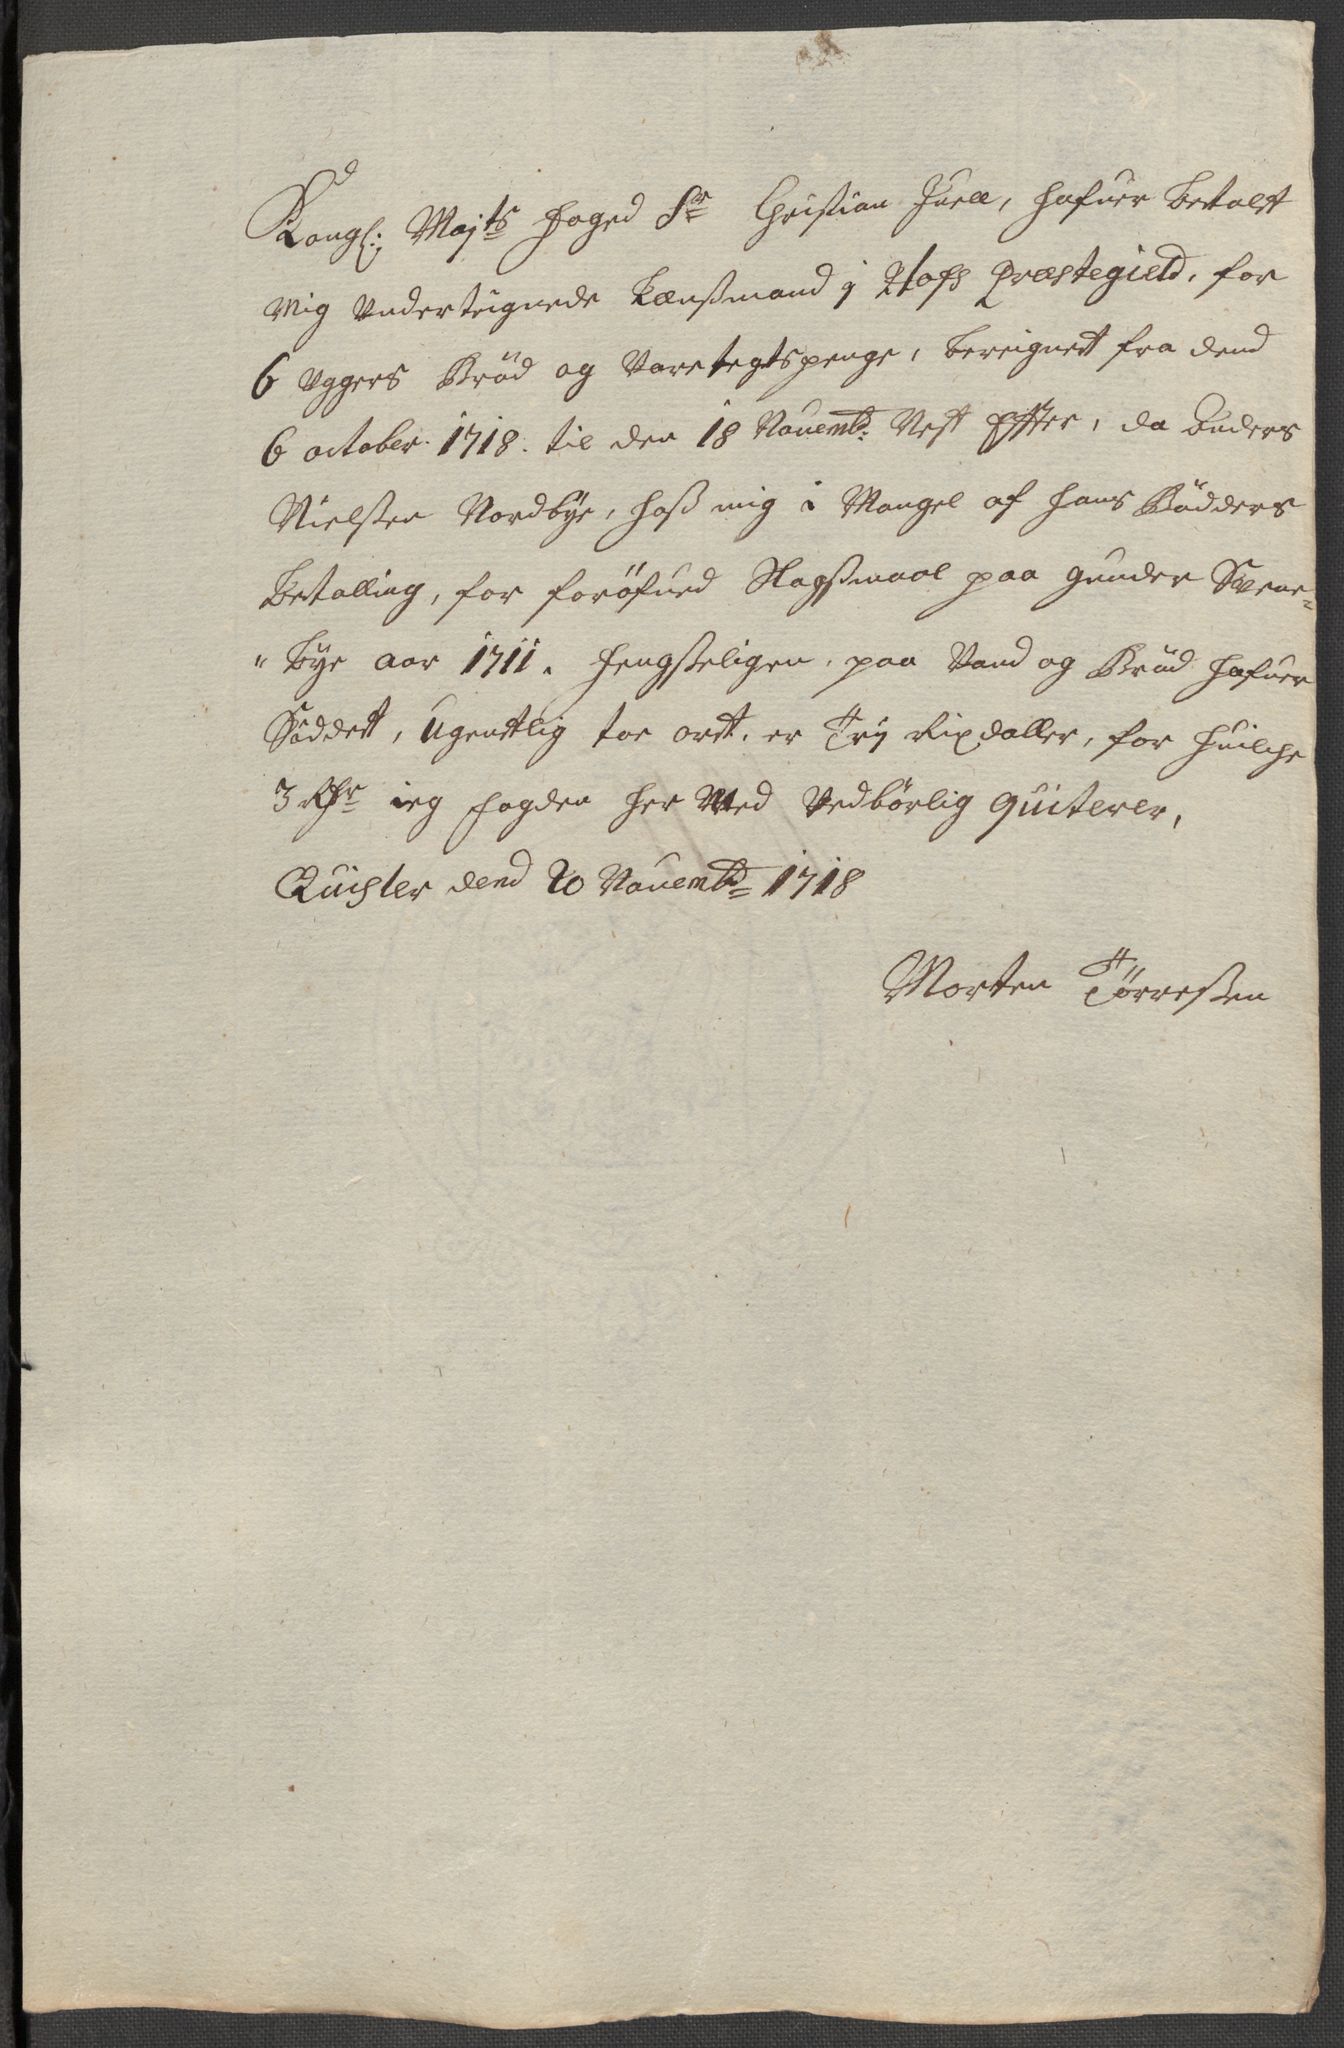 Kongl: Majts Foged Sr Christian Juell, hafuer betalt
mig Underteignede Lænßmand j Hofs Præstegield, for
6 Uggers Brød og Varetegtspenge, bereignet fra dend
6 october 1718. til den 18 Nouembr: Nest Effter, da Anders
Nielsen Nordbye, hoß mig i Mangel af hans Bødders
betalling, for forøfued Slagßmaal paa Gunder Svene-
"bye aar 1711. Fengßeligen paa Vand og Brød hafuer
Siddett, Ugenttlig toe ort. er Trej Rixdaller, for huilche
3 Rdr ieg Fogden her Med Vedbørlig quiterer,
dend 20 Nouembr 1718
Morten Tørreßen